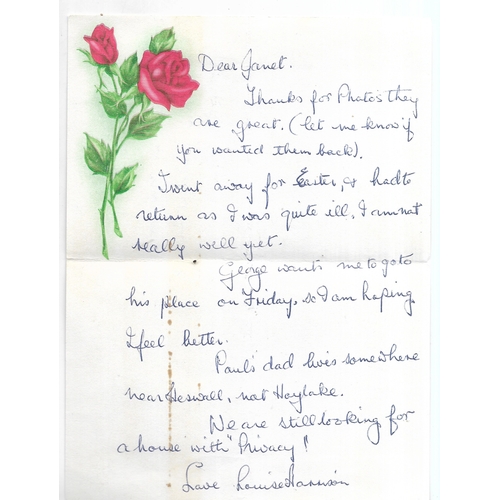 Dear Janet.
Thanks for Photo's they
are great. (let me know if
you wanted them back).
I went away for Easter, & had to
return as I was quite ill, I am not
really well yet.
George wants me to go to
his place on Friday, so I am hoping
I feel better.
Paul's dad lives somewhere
near Heswall, not Hoylake.
We are still looking for
a house with "Privacy"
Love Louise Harrison